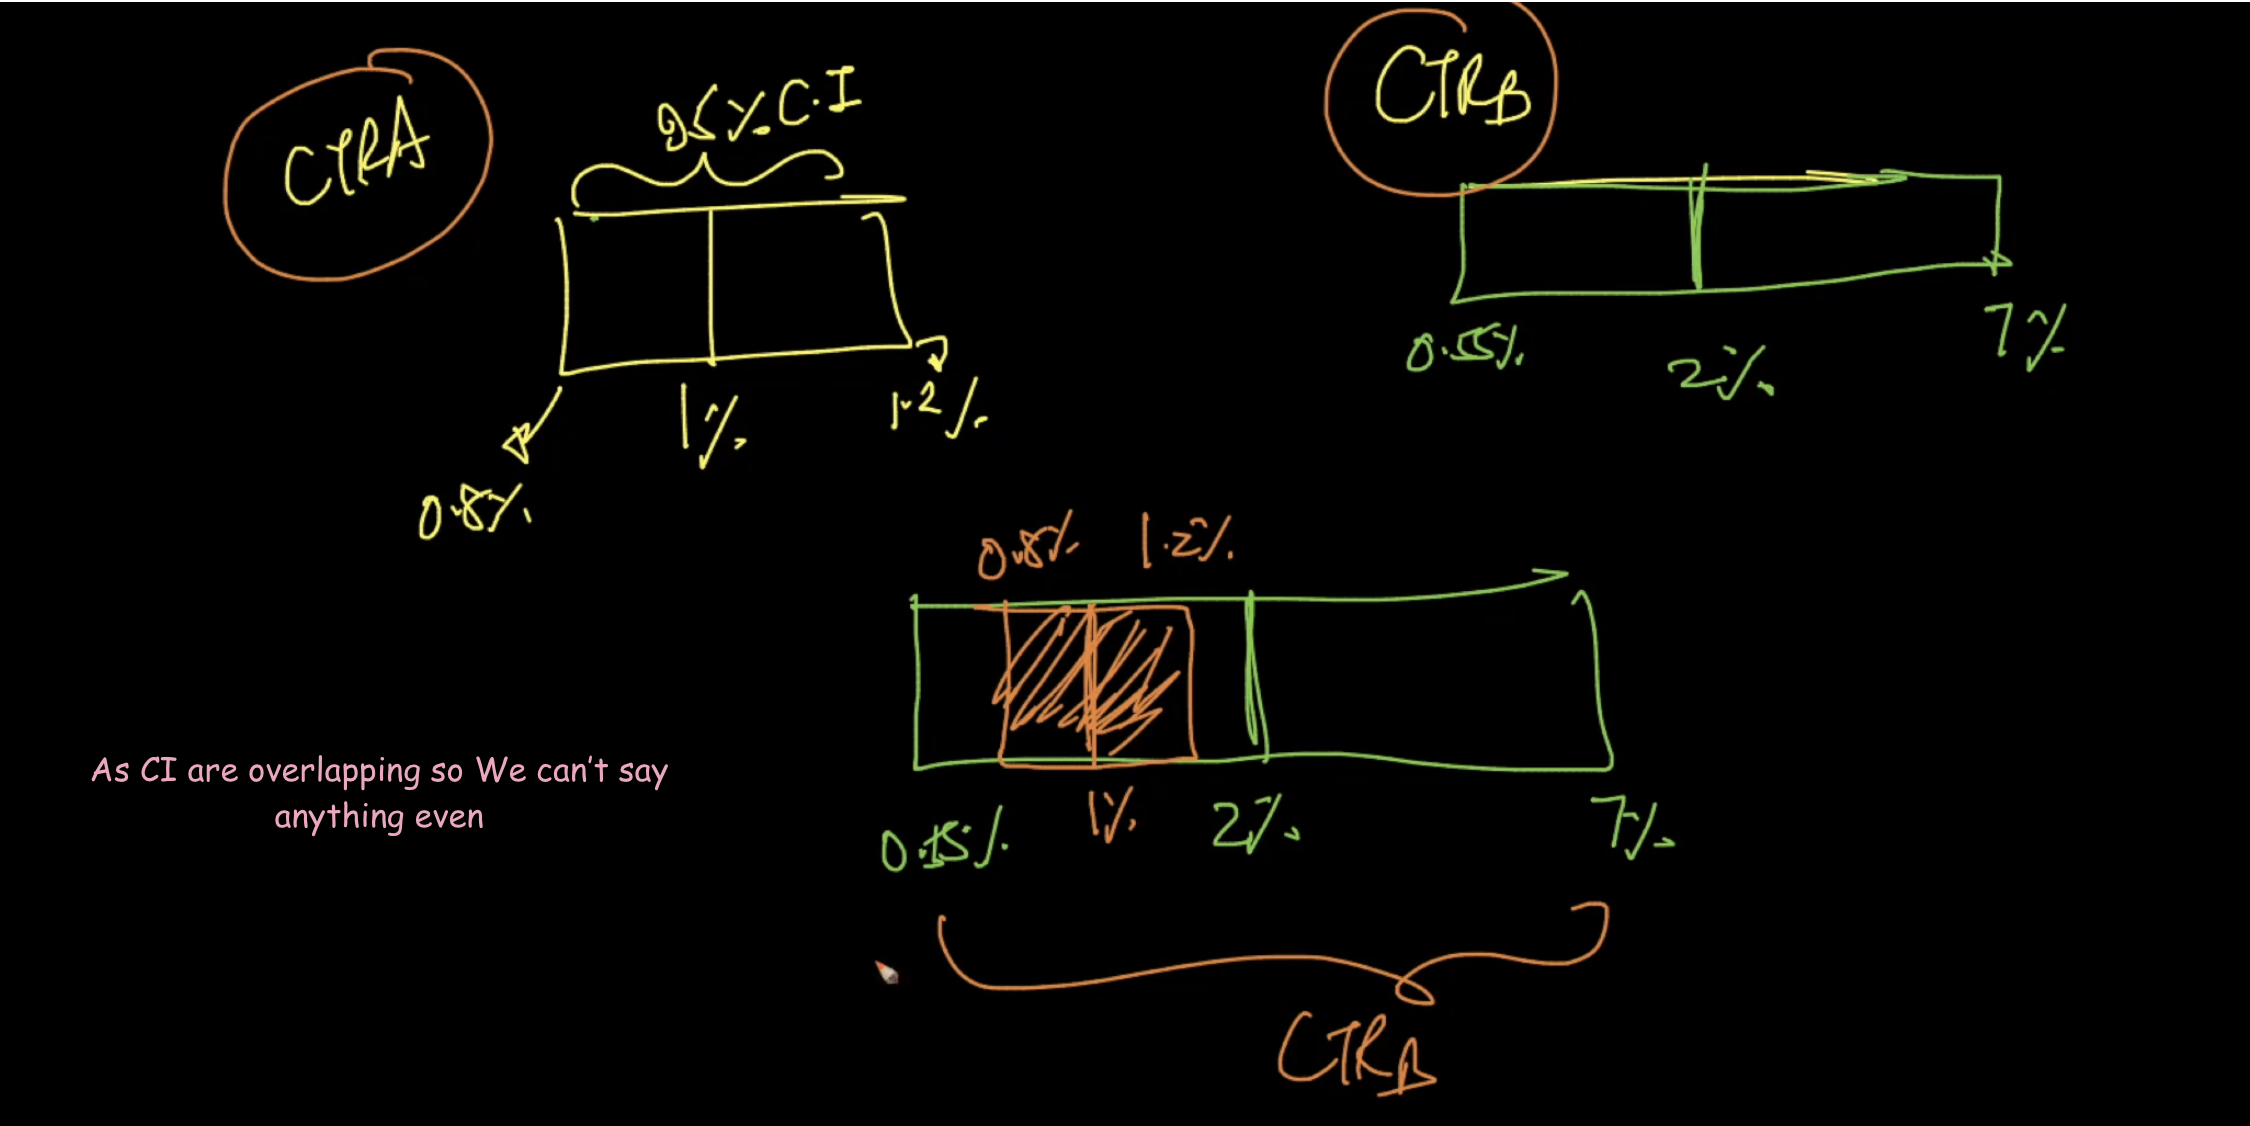 CTRA
95% C.I
0.8%
1%
1.2%
CTRB
0.55%
2%
7%
0.8% 1.2%
1% 2% 7%
CTRB
As CI are overlapping so We can't say
anything even